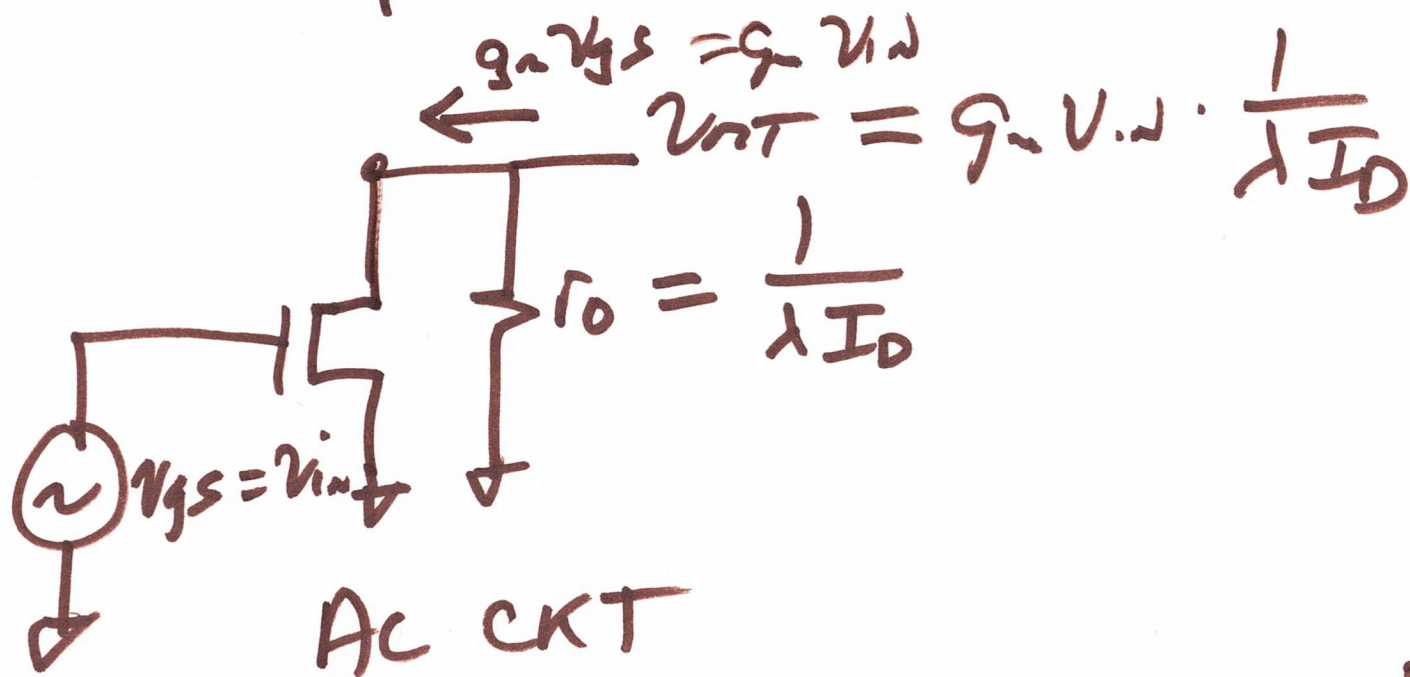 gm vgs = gm vin
vOUT = gm vin · 1/(λ ID)
ro = 1/(λ ID)
~ vgs = vin
AC CKT